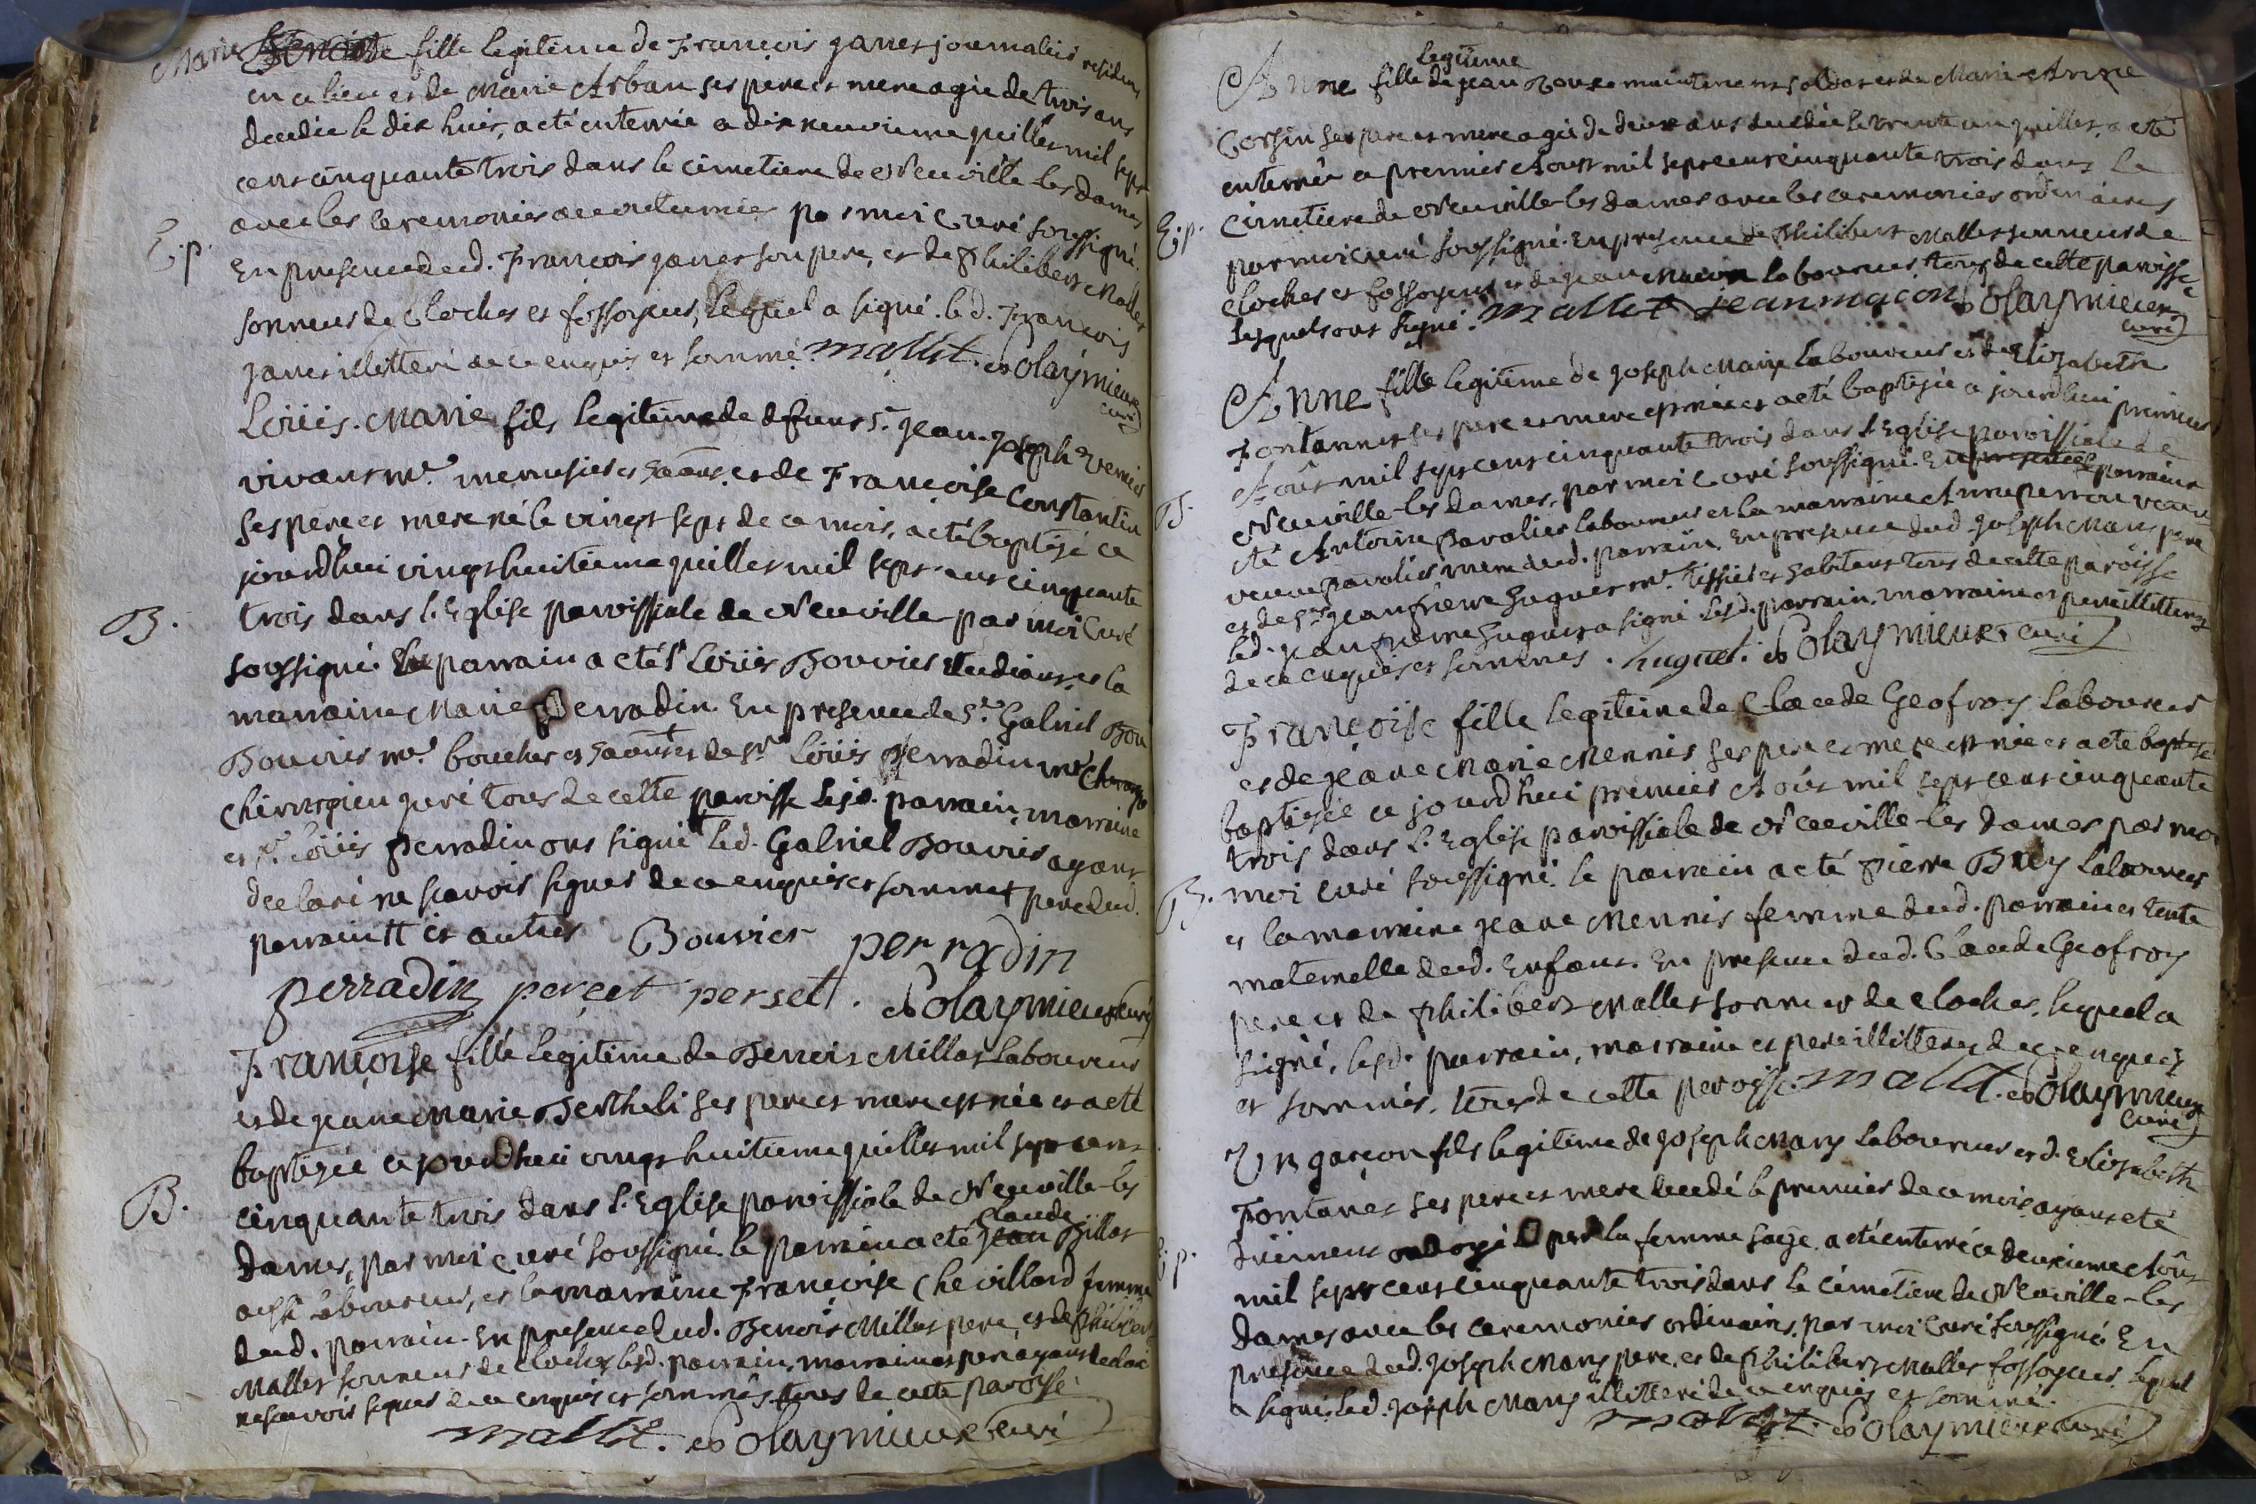 Marie Benoite fille legitime de Francois janet journalier resident
en ce lieu et de Marie Arban ses pere et mere agée de trois ans
decedée le dix huit, a eté enterrée ce dix neuvieme juillet mil sept
cent cinquante trois dans le cimetiere de Neuville les dames
avec les ceremonies accoutumées par moi Curé soussigné.
E.p.
En presence dud. François janet son pere, et de philibert Mallet
sonneur de Cloches et fossoyeur, lequel a signé. led. François
janet illitteré de ce enquis et sommé. mallet. Colaymieux
curé
Loüis. Marie fils legitime de defunt Sr. jean. joseph Vernier
vivant me. menusier et et de Françoise Constantin
ses pere et mere né le vingt sept de ce mois, a eté baptisé ce
jourdhui vingt huitieme juillet mil sept cent cinquante
B.
trois dans l'Eglise paroissiale de Neuville par moi Curé
soussigné. Le parrain a eté Sr Loüis Bouvier Etudiant, et la
marraine Marie perradin. En presence de Sr. Gabriel Bou
Bouvier me. boucher et et de Sr. Loüis perradin me
chirurgien juré tous de cette paroisse lesd. parrain, marraine
et Sr. Loüis perradin ont signé led. Gabriel Bouvier ayant
declaré ne scavoir signer de ce enquis et sommé pere dud.
parrain et autres Bouvier perradin
perradin perçet perset. Colaymieux curé
Françoise fille legitime de Benoit Millat Laboureur
et de jeane Marie Bertheli ses pere et mere est née et a eté
baptizée ce jourdhui vingt huitieme juillet mil sept cent
B.
cinquante trois dans l'Eglise paroissiale de Neuville les
Claude
dames, par moi curé soussigné. le parrain a eté jean Billat
aussi laboureur, et la marraine Francoise Chevillard femme
dud. parrain. En presence dud. Benoit Millat pere, et de philibert
Mallet sonneur de cloches lesd. parrain, marraine et pere ayant declaré
ne scavoir signer de ce enquis et sommés. tous de cette paroisse
mallet. Colaymieux curé
legitime
Anne fille de jean Roux maintenant soldat et de Marie Anne
Corsin ses pere et mere agée de deux ans decedée le trente un juillet, a eté
enterrée ce premier Aoust mil sept cent cinquante trois dans le
cimetiere de Neuville les dames avec les ceremonies ordinaires
E.p.
par moi curé soussigné. En presence de philibert Mallet sonneur de
cloches et fossoyeur et de jean macon laboureur, tous de cette paroisse
lesquels ont signé. mallet jean macon Colaymieux
curé
Anne fille legitime de joseph Mary laboureur et de Elizabeth
Fontannet ses pere et mere est née et a eté baptizée ce jourdhui premier
Août mil sept cent cinquante trois dans l'Eglise paroissiale de
B.
Neuville les dames, par moi Curé soussigné. En presence parrain
eté Antoine Bavalier laboureur et la marraine Anne perrou
veuve Bavalier mere dud. parrain. En presence dud. joseph Mary pere
et de Sr. jean huguet me. tissier et habitant tous de cette paroisse
led. jean huguet a signé lesd. parrain, marraine et pere illitterés
de ce enquis et sommés. huguet. Colaymieux. curé
Françoise fille legitime de Claude Geofroy laboureur
et de jeane Marie Mennit ses pere et mere est née et a eté baptisé
baptizée ce jourdhui premier Août mil sept cent cinquante
trois dans l'Eglise paroissiale de Neuville les dames par moi
B.
moi curé soussigné. le parrain a eté pierre Brey laboureur
et la marraine jeane Mennit femme dud. parrain et tente
maternelle dud. enfant. En presence dud. Claude Geofroy
pere et de philibert Mallet sonneur de cloches, lequel a
signé, lesd. parrain, marraine et pere illitterés de ce enquis
et sommés. tous de cette paroisse. mallet. Colaymieux
curé
Un garçon fils legitime de joseph Mary laboureur et d. Elizabeth
Fontanet ses pere et mere decedé le premier de ce mois, ayant eté
E.p.
ondoyé par la femme sage. a eté enterré ce deuxieme Août
mil sept cent cinquante trois dans le cimetiere de Neuville les
dames avec les ceremonies ordinaires, par moi Curé soussigné. En
presence dud. joseph Mary pere, et de philibert Mallet fossoyeur, lequel
a signé. led. joseph Mary illitteré de ce enquis et sommé.
mallet. Colaymieux curé